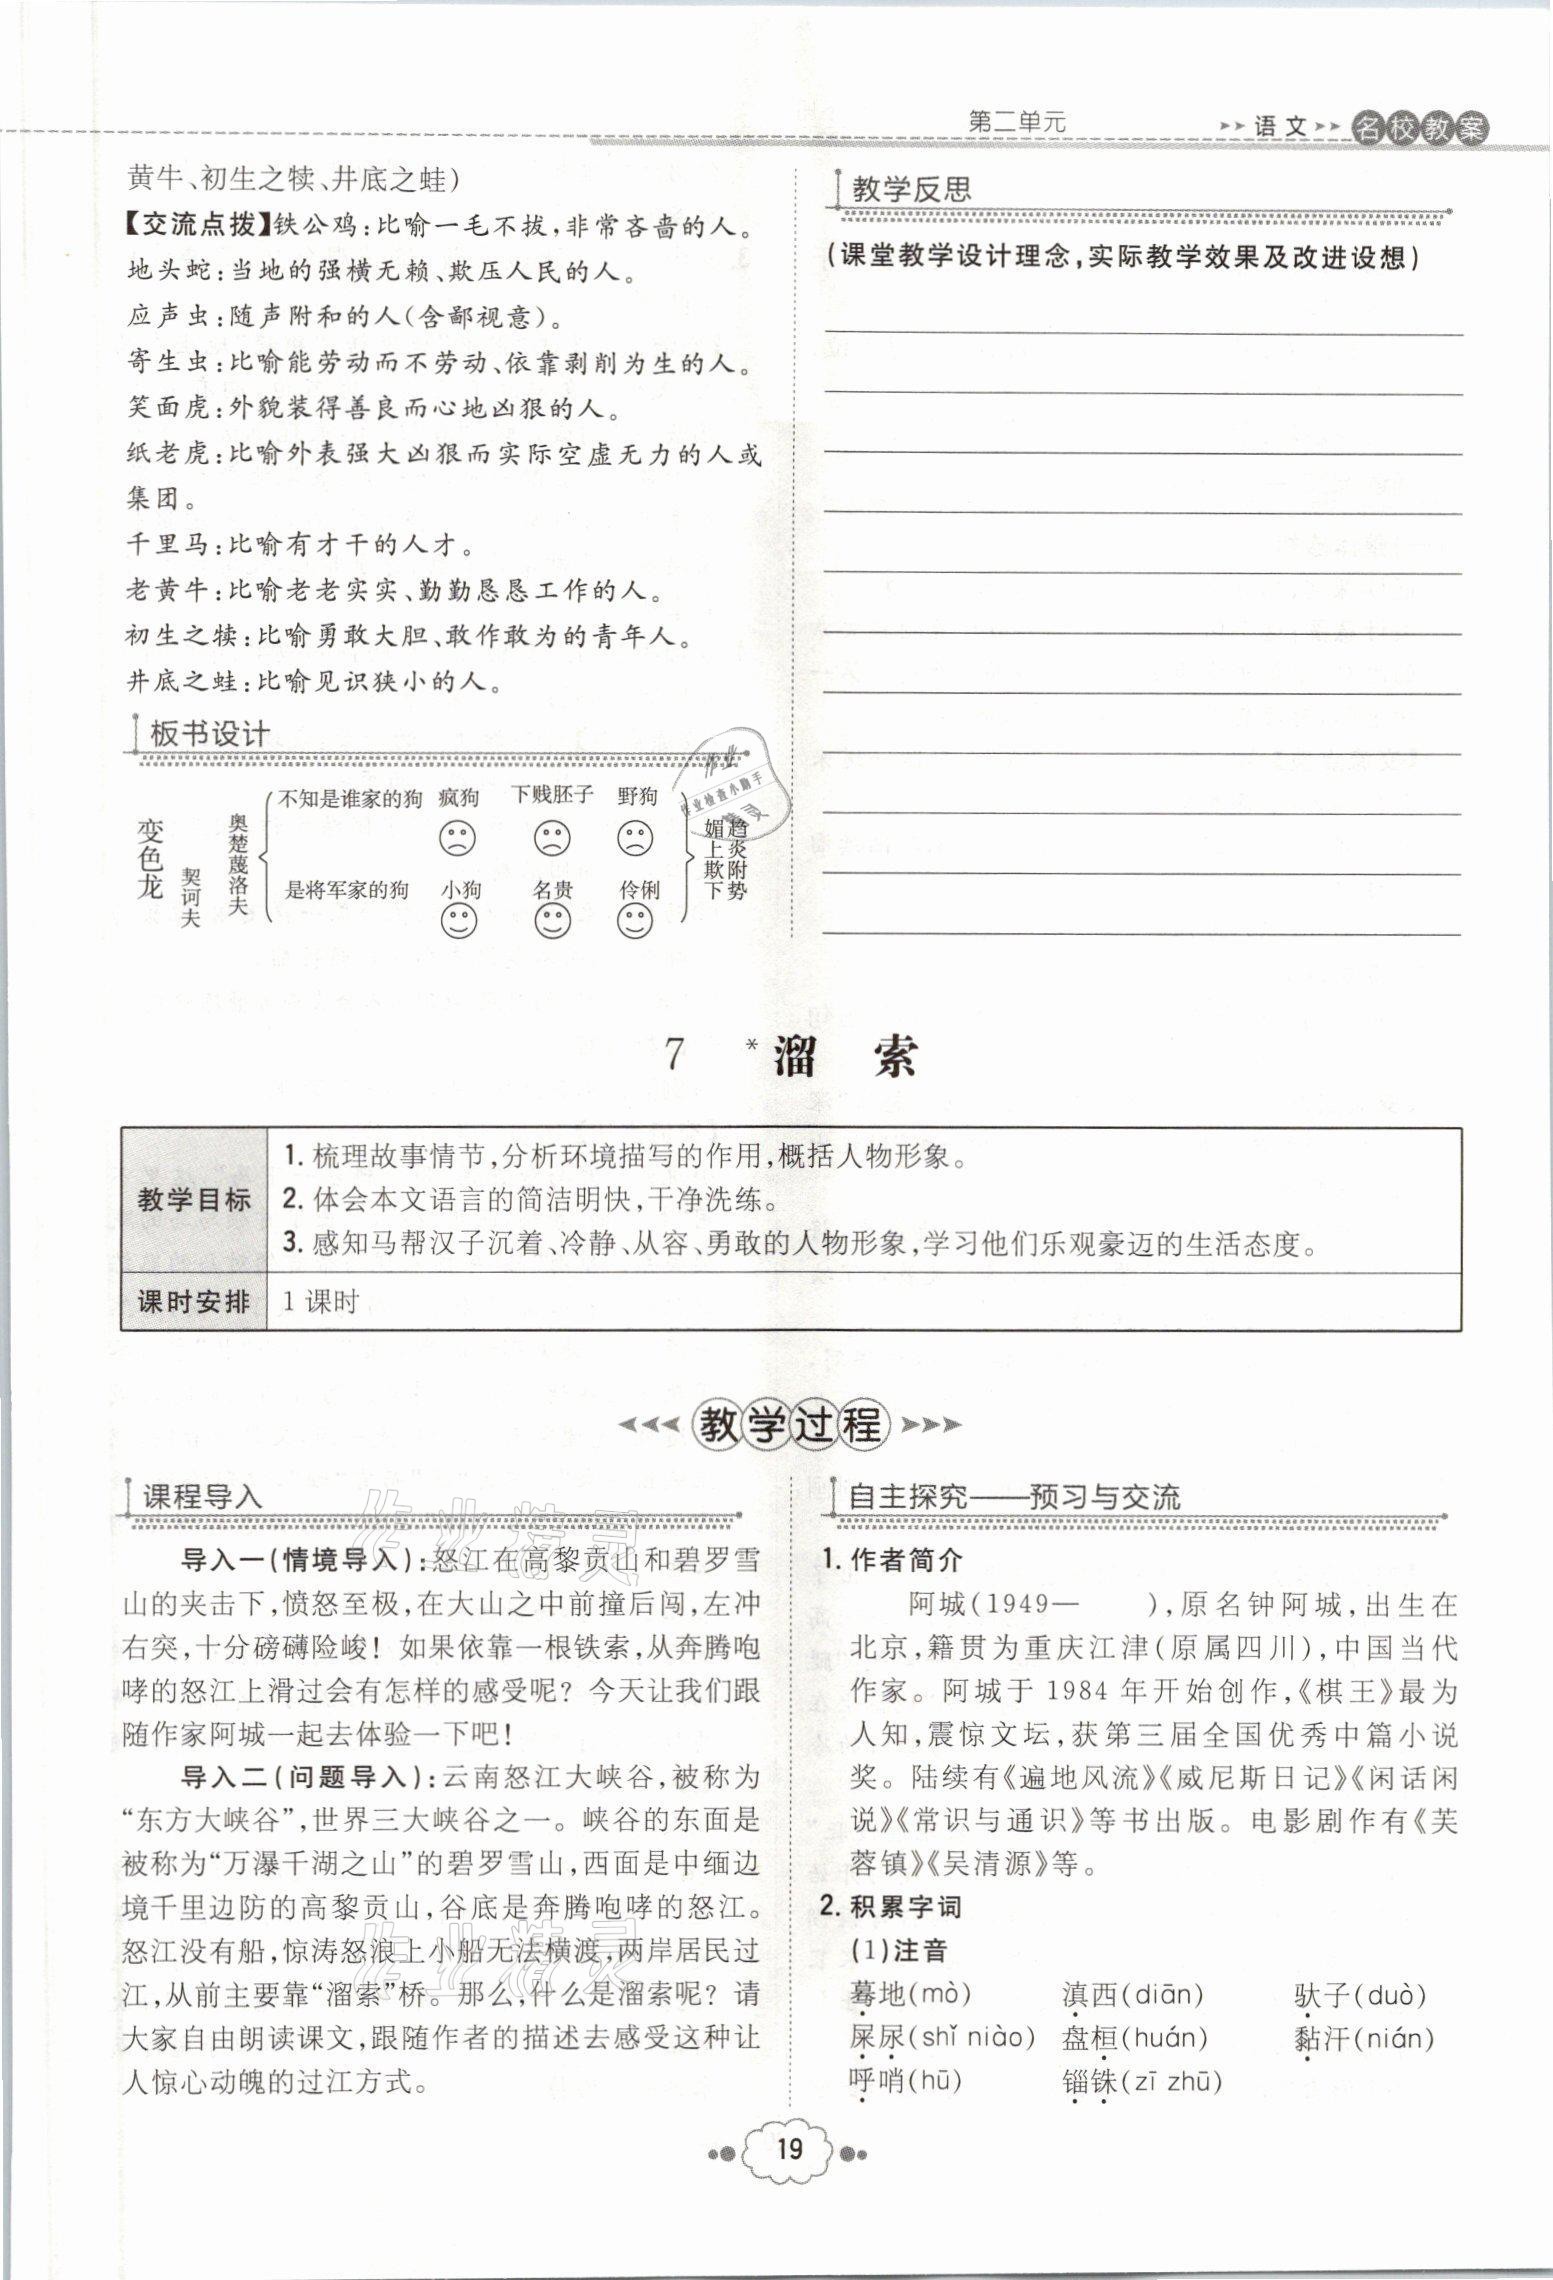 第二单元
语文
名校教案
黄牛、初生之犊、井底之蛙)
【交流点拨】铁公鸡:比喻一毛不拔,非常吝啬的人。
地头蛇:当地的强横无赖、欺压人民的人。
应声虫:随声附和的人(含鄙视意)。
寄生虫:比喻能劳动而不劳动、依靠剥削为生的人。
笑面虎:外貌装得善良而心地凶狠的人。
纸老虎:比喻外表强大凶狠而实际空虚无力的人或
集团。
千里马:比喻有才干的人才。
老黄牛:比喻老老实实、勤勤恳恳工作的人。
初生之犊:比喻勇敢大胆、敢作敢为的青年人。
井底之蛙:比喻见识狭小的人。
板书设计
变色龙
契诃夫
奥楚蔑洛夫
不知是谁家的狗 疯狗 下贱胚子 野狗
是将军家的狗 小狗 名贵 伶俐
媚上欺下
趋炎附势
作业
作业检查小助手
教学反思
(课堂教学设计理念,实际教学效果及改进设想)
7 *溜 索
教学目标
1. 梳理故事情节,分析环境描写的作用,概括人物形象。
2. 体会本文语言的简洁明快,干净洗练。
3. 感知马帮汉子沉着、冷静、从容、勇敢的人物形象,学习他们乐观豪迈的生活态度。
课时安排
1 课时
教学过程
课程导入
导入一(情境导入):怒江在高黎贡山和碧罗雪
山的夹击下,愤怒至极,在大山之中前撞后闯,左冲
右突,十分磅礴险峻! 如果依靠一根铁索,从奔腾咆
哮的怒江上滑过会有怎样的感受呢? 今天让我们跟
随作家阿城一起去体验一下吧!
导入二(问题导入):云南怒江大峡谷,被称为
“东方大峡谷”,世界三大峡谷之一。峡谷的东面是
被称为“万瀑千湖之山”的碧罗雪山,西面是中缅边
境千里边防的高黎贡山,谷底是奔腾咆哮的怒江。
怒江没有船,惊涛怒浪上小船无法横渡,两岸居民过
江,从前主要靠“溜索”桥。那么,什么是溜索呢? 请
大家自由朗读课文,跟随作者的描述去感受这种让
人惊心动魄的过江方式。
作业精灵
作业精灵
自主探究——预习与交流
1. 作者简介
阿城(1949— ),原名钟阿城,出生在
北京,籍贯为重庆江津(原属四川),中国当代
作家。阿城于 1984 年开始创作,《棋王》最为
人知,震惊文坛,获第三届全国优秀中篇小说
奖。陆续有《遍地风流》《威尼斯日记》《闲话闲
说》《常识与通识》等书出版。电影剧作有《芙
蓉镇》《吴清源》等。
2. 积累字词
(1)注音
蓦地(mò) 滇西(diān) 驮子(duò)
屎尿(shǐ niào) 盘桓(huán) 黏汗(nián)
呼哨(hū) 锱铢(zī zhū)
19